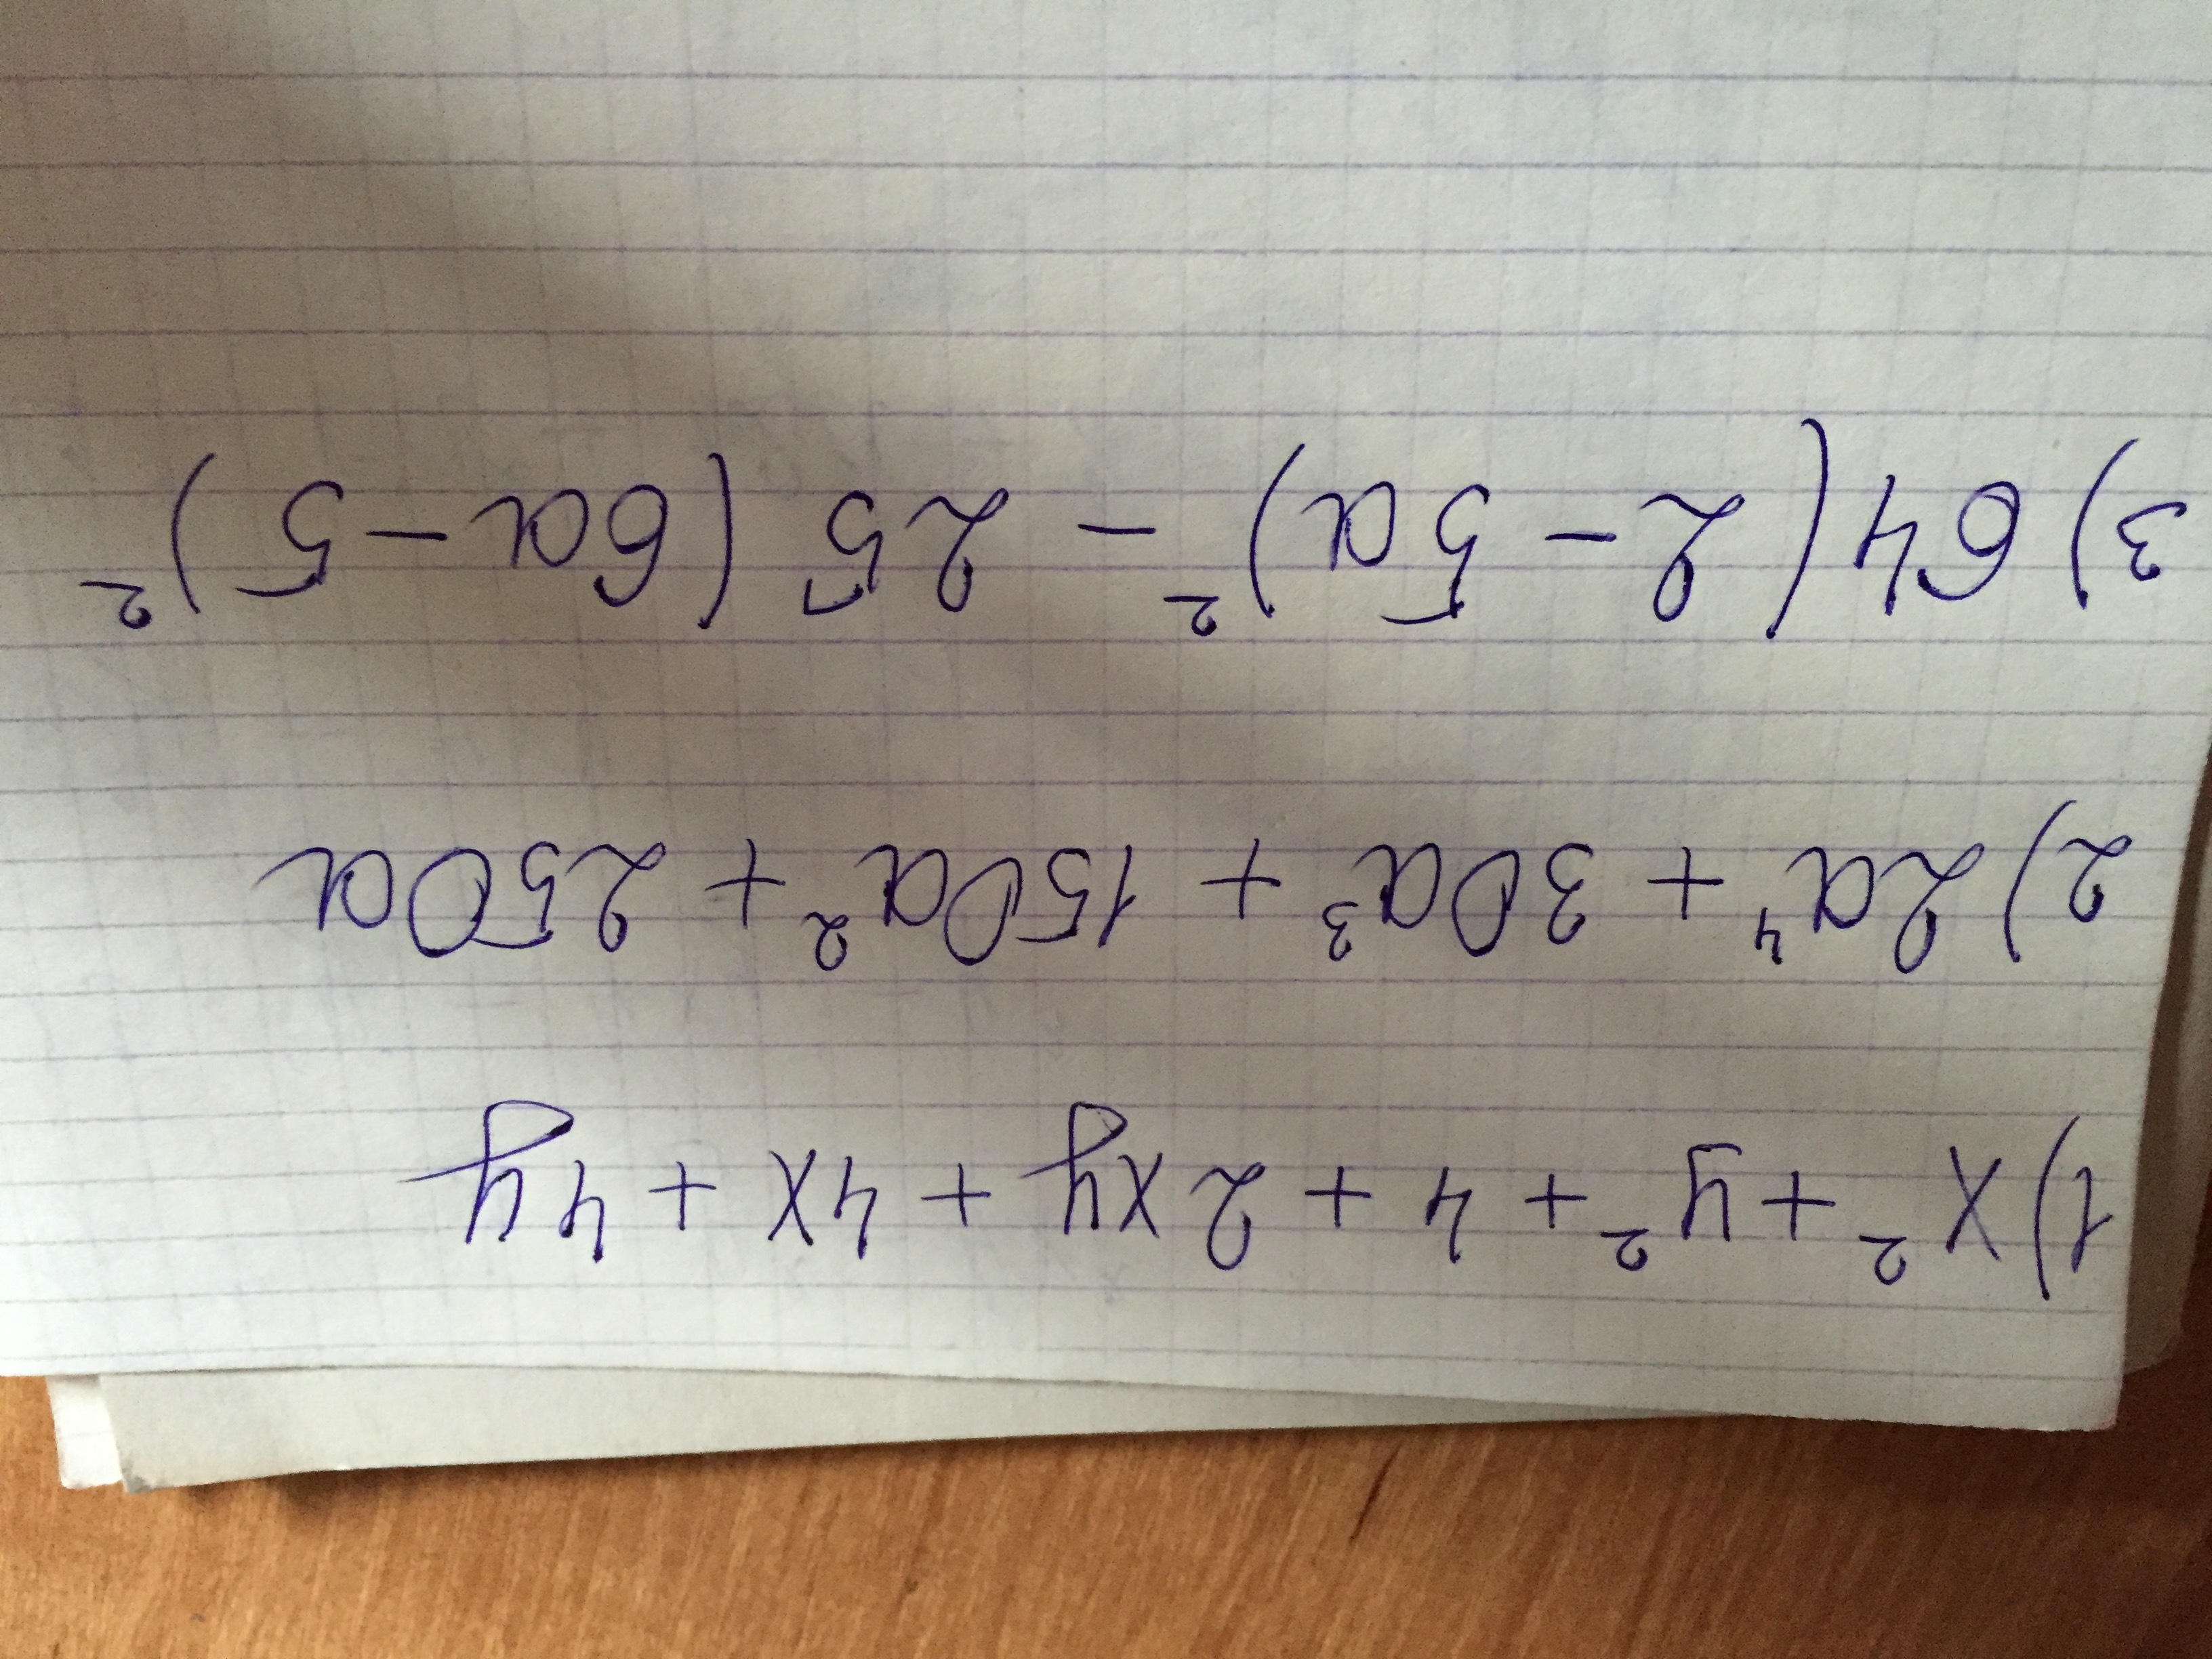 1) x² + y² + 4 + 2xy + 4x + 4y
2) 2a⁴ + 30a³ + 150a² + 250a
3) 64(2 - 5a)² - 25(6a - 5)²